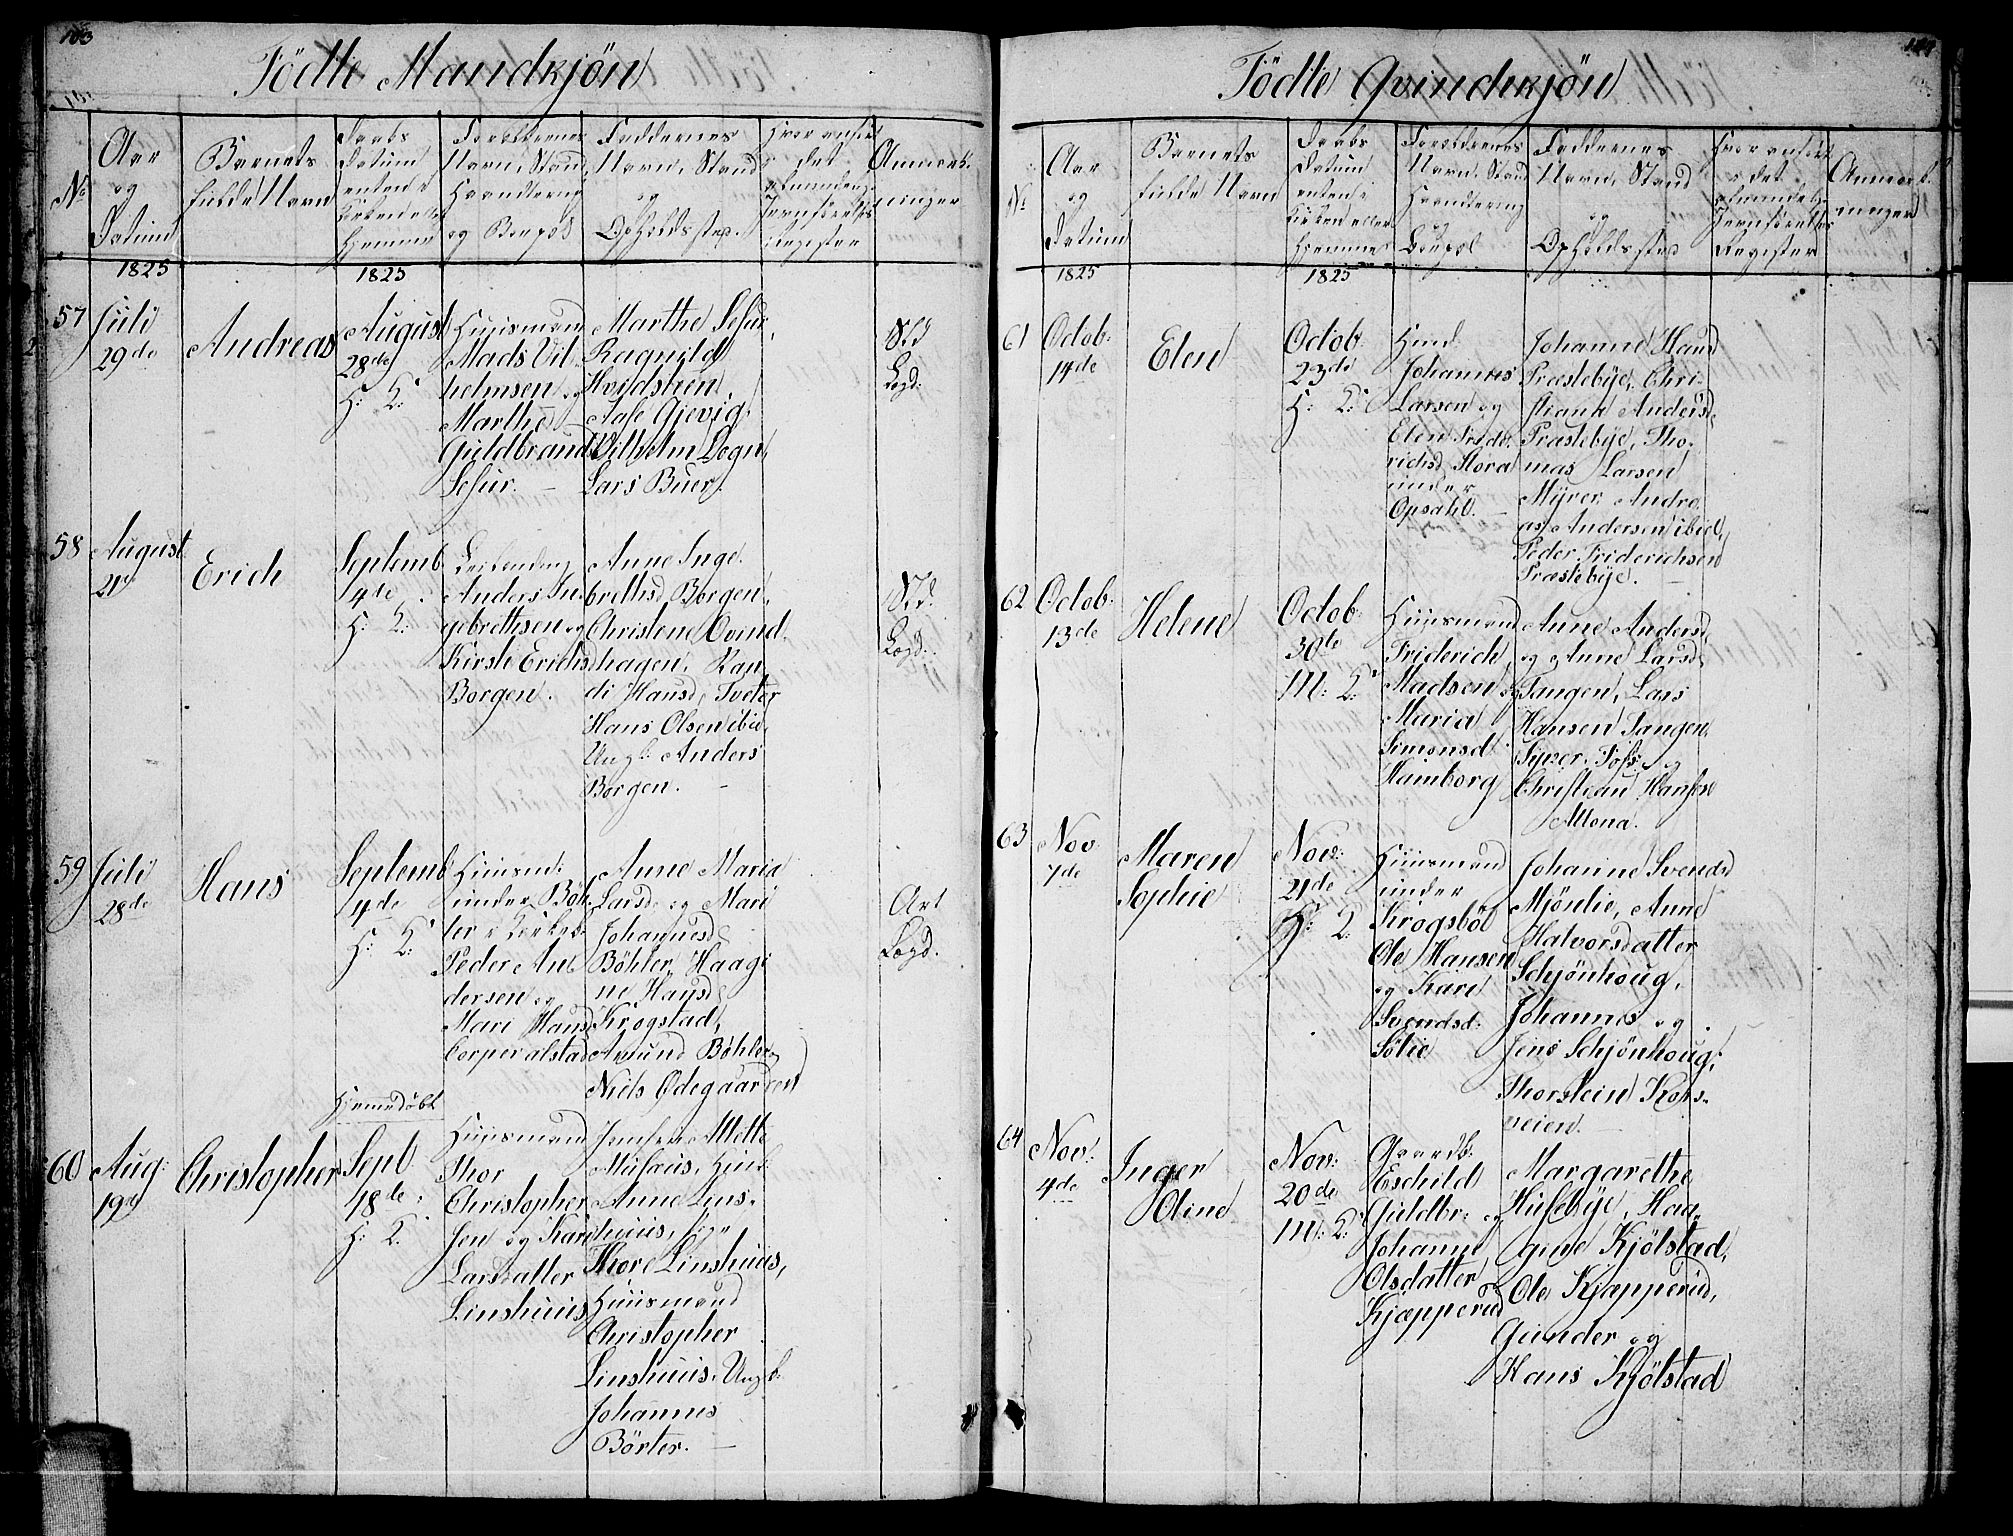 103
Födte Mandkjön
No
Aar
og
Datum
Barnets
fulde Navn
Daabs
Datum
enten i
Kirken eller
Hjemme
Forældrenes
Navn, Stand
Haandtering
og Bopæl
Faddernes
Navn, Stand
og
Opholdssted
Hvor anført
i det
almindelige
Jevnførelses
Register
Anmærk-
ninger
1825
1825
57
Juli
29de
Andreas
August
28de
H: K:
Huusmand
Mads Vil-
helmsen og
Marthe
Guldbrandsd
Marthe
Ragnild
Hvidsteen
Aase Gjevig
Vilhelm Dogn
Lars Buer.
Std
Logd:
58
August
21de
Erich
Septemb
4de
H: K:
Anders In-
gebrethsen og
Kirsti Erichsd
Borgen.
Anne Inge-
brethsd Borgen,
Christene Qvind-
hagen, Ran-
di Hansd, Tveter
Hans Olsen ibid,
Ungk: Anders
Borgen.
Std:
Logd:
59
Juli
28de
Hans
Septemb
4de
H: K:
Huusmd:
under Böh-
ler i Kirkeb:
Peder An-
dersen og
Mari Hansd
Corperalstad
Anne Maria
Larsd, og Mari
Johannesd
Böhler, Haagi-
ne Hansd
Krogstad,
Amund Böhler
Niels Ødegaarden
Art
Logd.
Hjemedöbt
60
Aug:
19de
Christopher
Sept
18de
H: K:
Huusmand
Thor
Christopher-
sen og Kari
Larsdatter
Linshuus
Jomfru Mette
Musæus,
Anne Lins-
huus,
Thore Linshuus,
Huusmand
Christopher
Linshuus, Ungk:
Johannes
Börter.
104
Födte Qvindekjön
No
Aar
og
Datum
Barnets
fulde Navn
Daabs
Datum
enten i
Kirken eller
Hjemme
Forældrenes
Navn, Stand
Haandtering
og
Boepæl
Faddernes
Navn, Stand
og
Opholdssted
Hvor anført
i det
almindelige
Jevnførelses
Register
Anmærk-
ninger
1825
1825
61
Octob:
14de
Elen
Octob
23de
H: K:
Huusd:
Johannes
Larsen og
Elen Fride-
richsd Stora
under
Opsahl.
Johanne Hansd
Præstebye, Chri-
stiane Andersd
Præstebye, Tho-
mas Larsen
Myrer, Andre-
as Andersen ibid,
Peder Friderichsen
Præstebye.
62
Octob:
13de
Helene
Octob
30de
M: K:
Huusmand
Friderich
Madsen og
Maria
Simonsd
Hamborg
Anne Andersd,
og Anne Larsd
Tangen, Lars
Hansen Tangen,
Syver Foss og
Christian Hansen
Altona.
63
Nov
7de
Maren
Sophie
Nov:
21de
H: K:
Huusmand
under
Krogsböl
Ole Hansen
og Kari
Svendsd:
Sölie
Johanne Svendsd
Mjönlie, Anne
Halvorsdatter
Schjönhoug,
Johannes og
Jens Schjönhoug,
Thorstein Kors-
veien.
64
Nov:
4de
Inger
Oline
Nov:
20de
M: K:
Gaardb:
Eschild
Guldbr: og
Johanne
Olsdatter
Kjæpperud
Margarethe
Husebye, Haa-
gine Kjölstad,
Ole Kjæpperud,
Gunder og
Hans Kjölstad